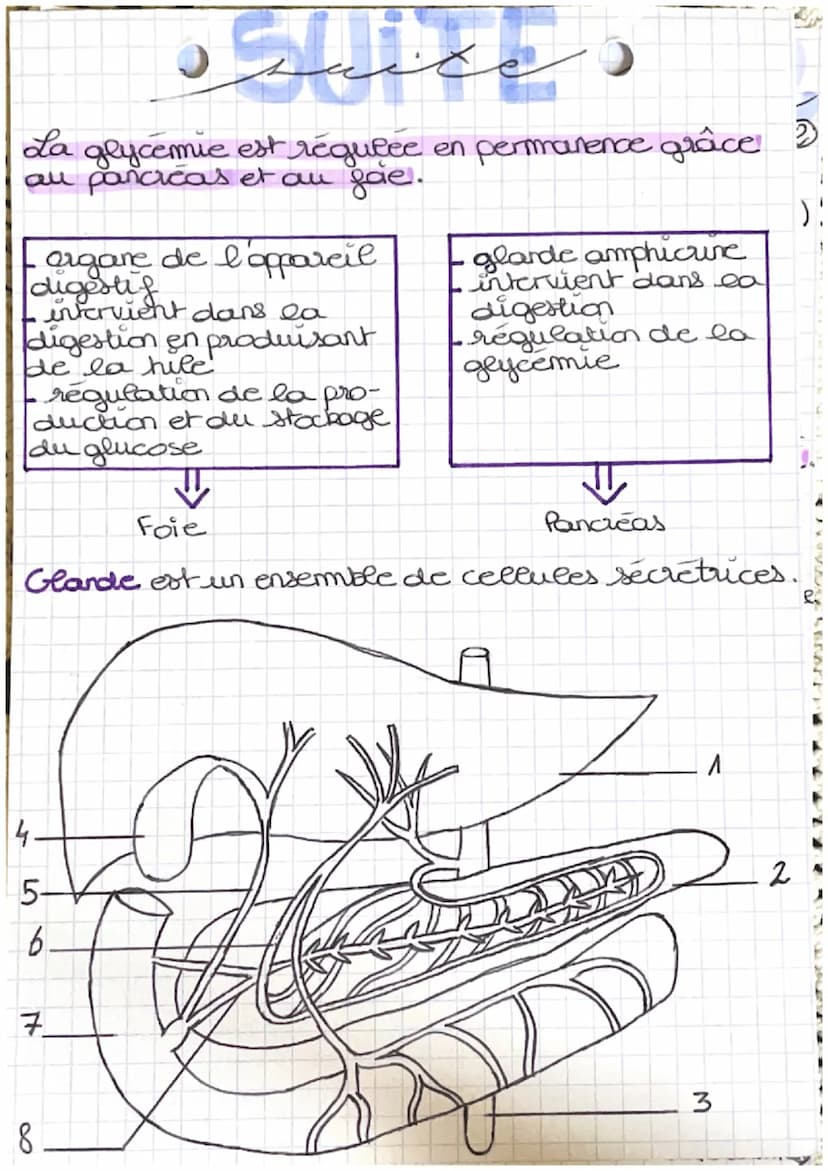 SUITE
suite
La glycémie est régulée en permanence grâce
au pancréas et au foie.
- organe de l'appareil
digestif
- intervient dans la
digestion en produisant
de la bile
- régulation de la pro-
duction et du stockage
du glucose
Foie
- glande amphicrine
- intervient dans la
digestion
- régulation de la
glycémie
Pancréas
Glande est un ensemble de cellules sécrétrices.
1
2
3
4
5
6
7
8